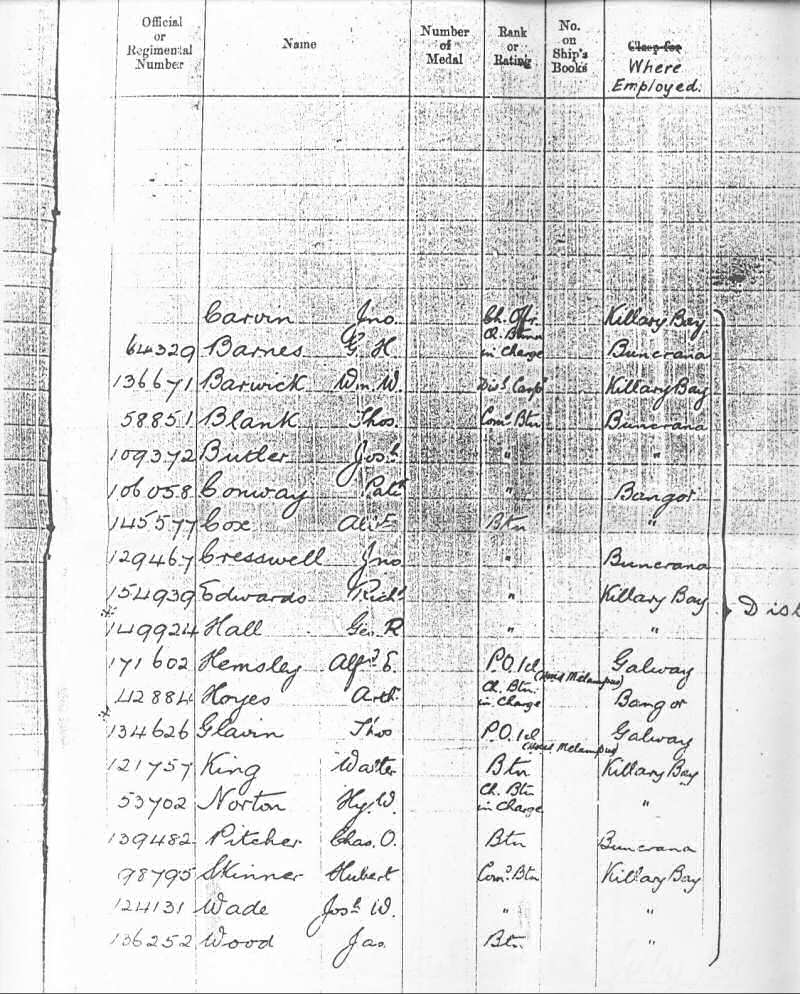 Official or Regimental Number Name Number of Medal Rank or Rating No. on Ship's Books Clasp for Where Employed.
Carvin Jno. Ch. Offr. Killary Bay
64329 Barnes G. H. Ch. Btmn in Charge Buncrana
136671 Barwick Wm. W. Killary Bay
58851 Blank Thos. Comd Btn Buncrana
109372 Butler Josh. " "
106058 Conway Patk " Bangor
145577 Cox Btn "
129467 Cresswell Jno " Buncrana
154939 Edwards Richd " Killary Bay
* 149924 Hall Geo. R " " Dist
171602 Hemsley Alfd. E. P.O. 1cl (H.M.S Melampus) Galway
42884 Hoyes Arth. Ch. Btn. in Charge Bangor
* 134626 Glavin Thos P.O. 1cl (H.M.S Melampus) Galway
121757 King Walter Btn Killary Bay
53702 Norton Hy. W. Ch. Btn in Charge "
139482 Pitcher Chas. O. Btn Buncrana
98795 Skinner Hubert Comd Btn Killary Bay
124131 Wade Josh W. " "
136252 Wood Jas. Btn "